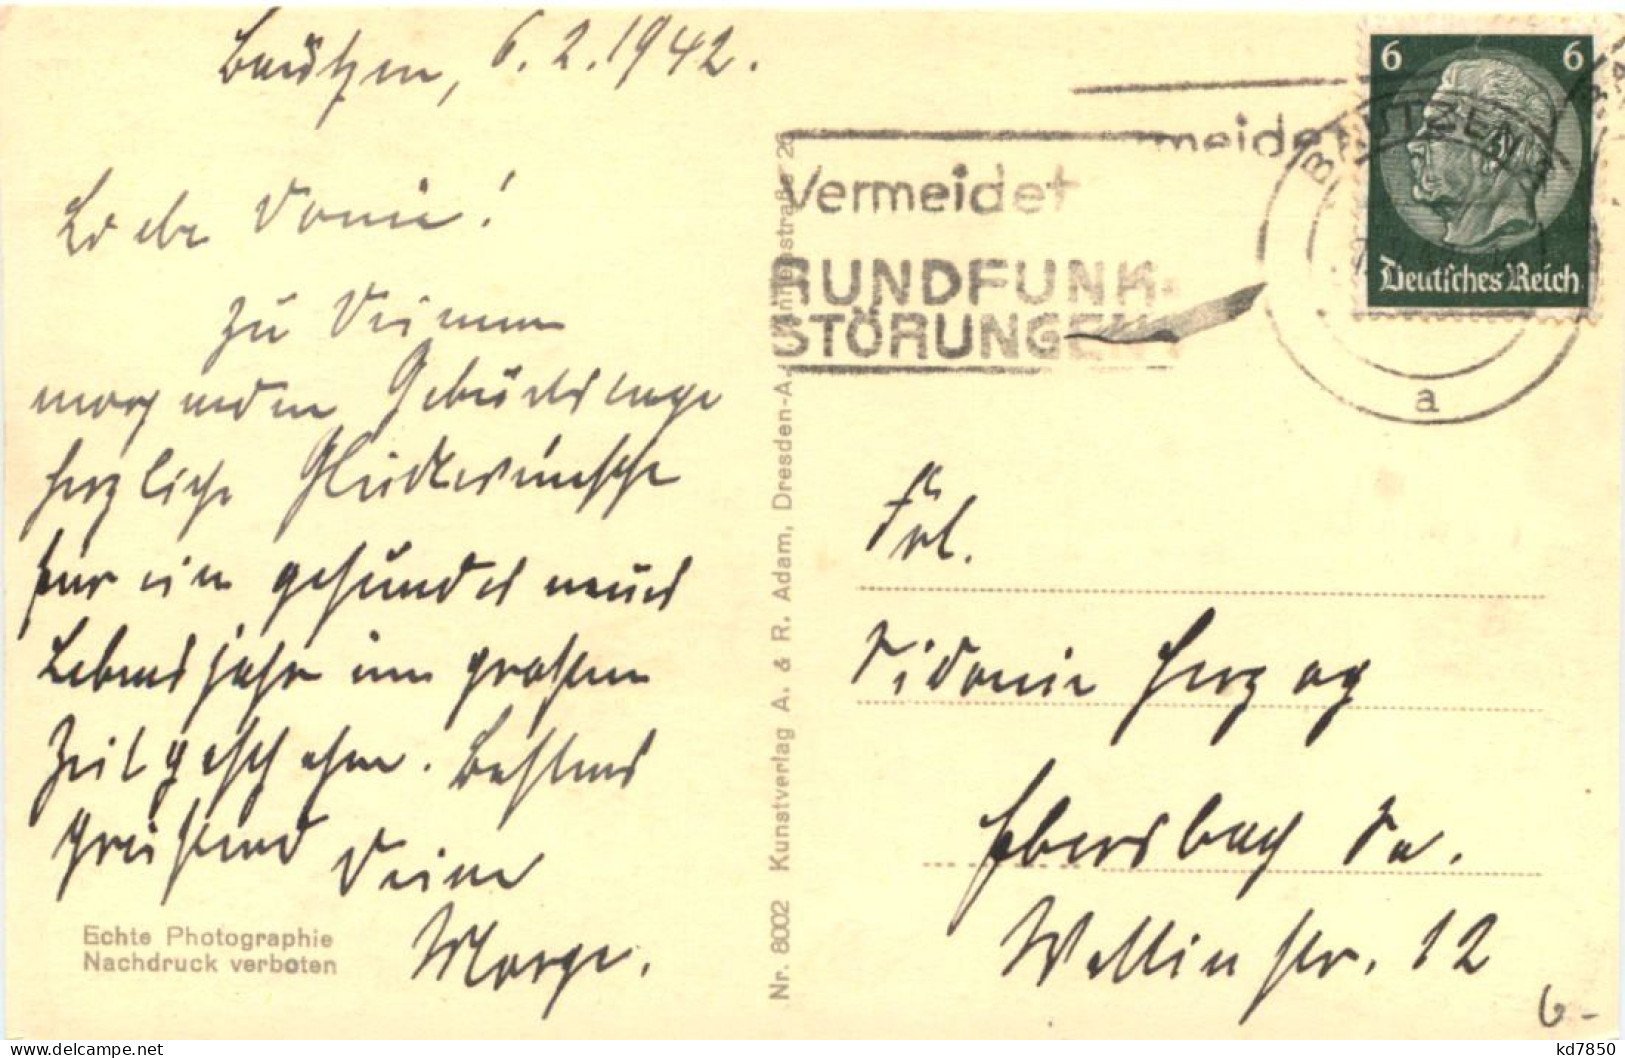 Bautzen, 6.2.1942.
Liebe Donie!
Zu Deinem
morgenden Geburtstage
herzliche Glückwünsche
für ein gesundes neues
Lebensjahr im großen
Zeitgeschehen. Bestens
grüßend Deine
Echte Photographie
Nachdruck verboten
Nr. 8002 Kunstverlag A. & R. Adam, Dresden-A.
Vermeidet
RUNDFUNK-
STÖRUNGEN
meidet
BAUTZEN
a
6 6
Deutsches Reich
Frl.
Sidonie Herzog
Ebersbach Sa.
str. 12
6-
kd7850